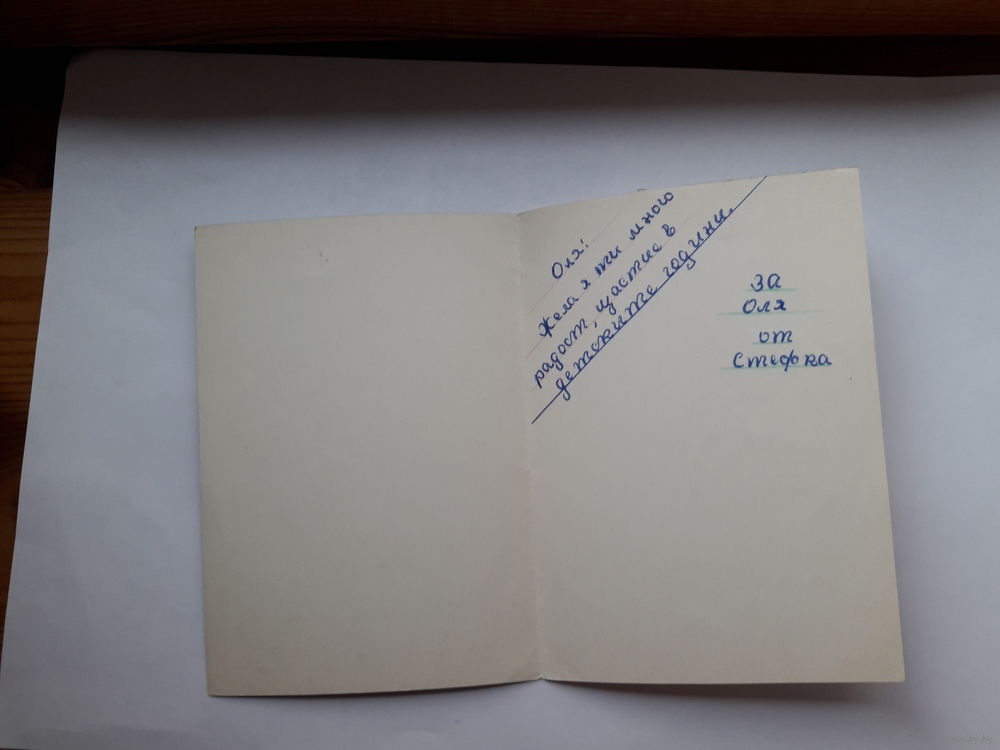 Оля!
Жела я ти много
радост, щастие в
детските години.
за
Оля
от
Стефка
ay.by